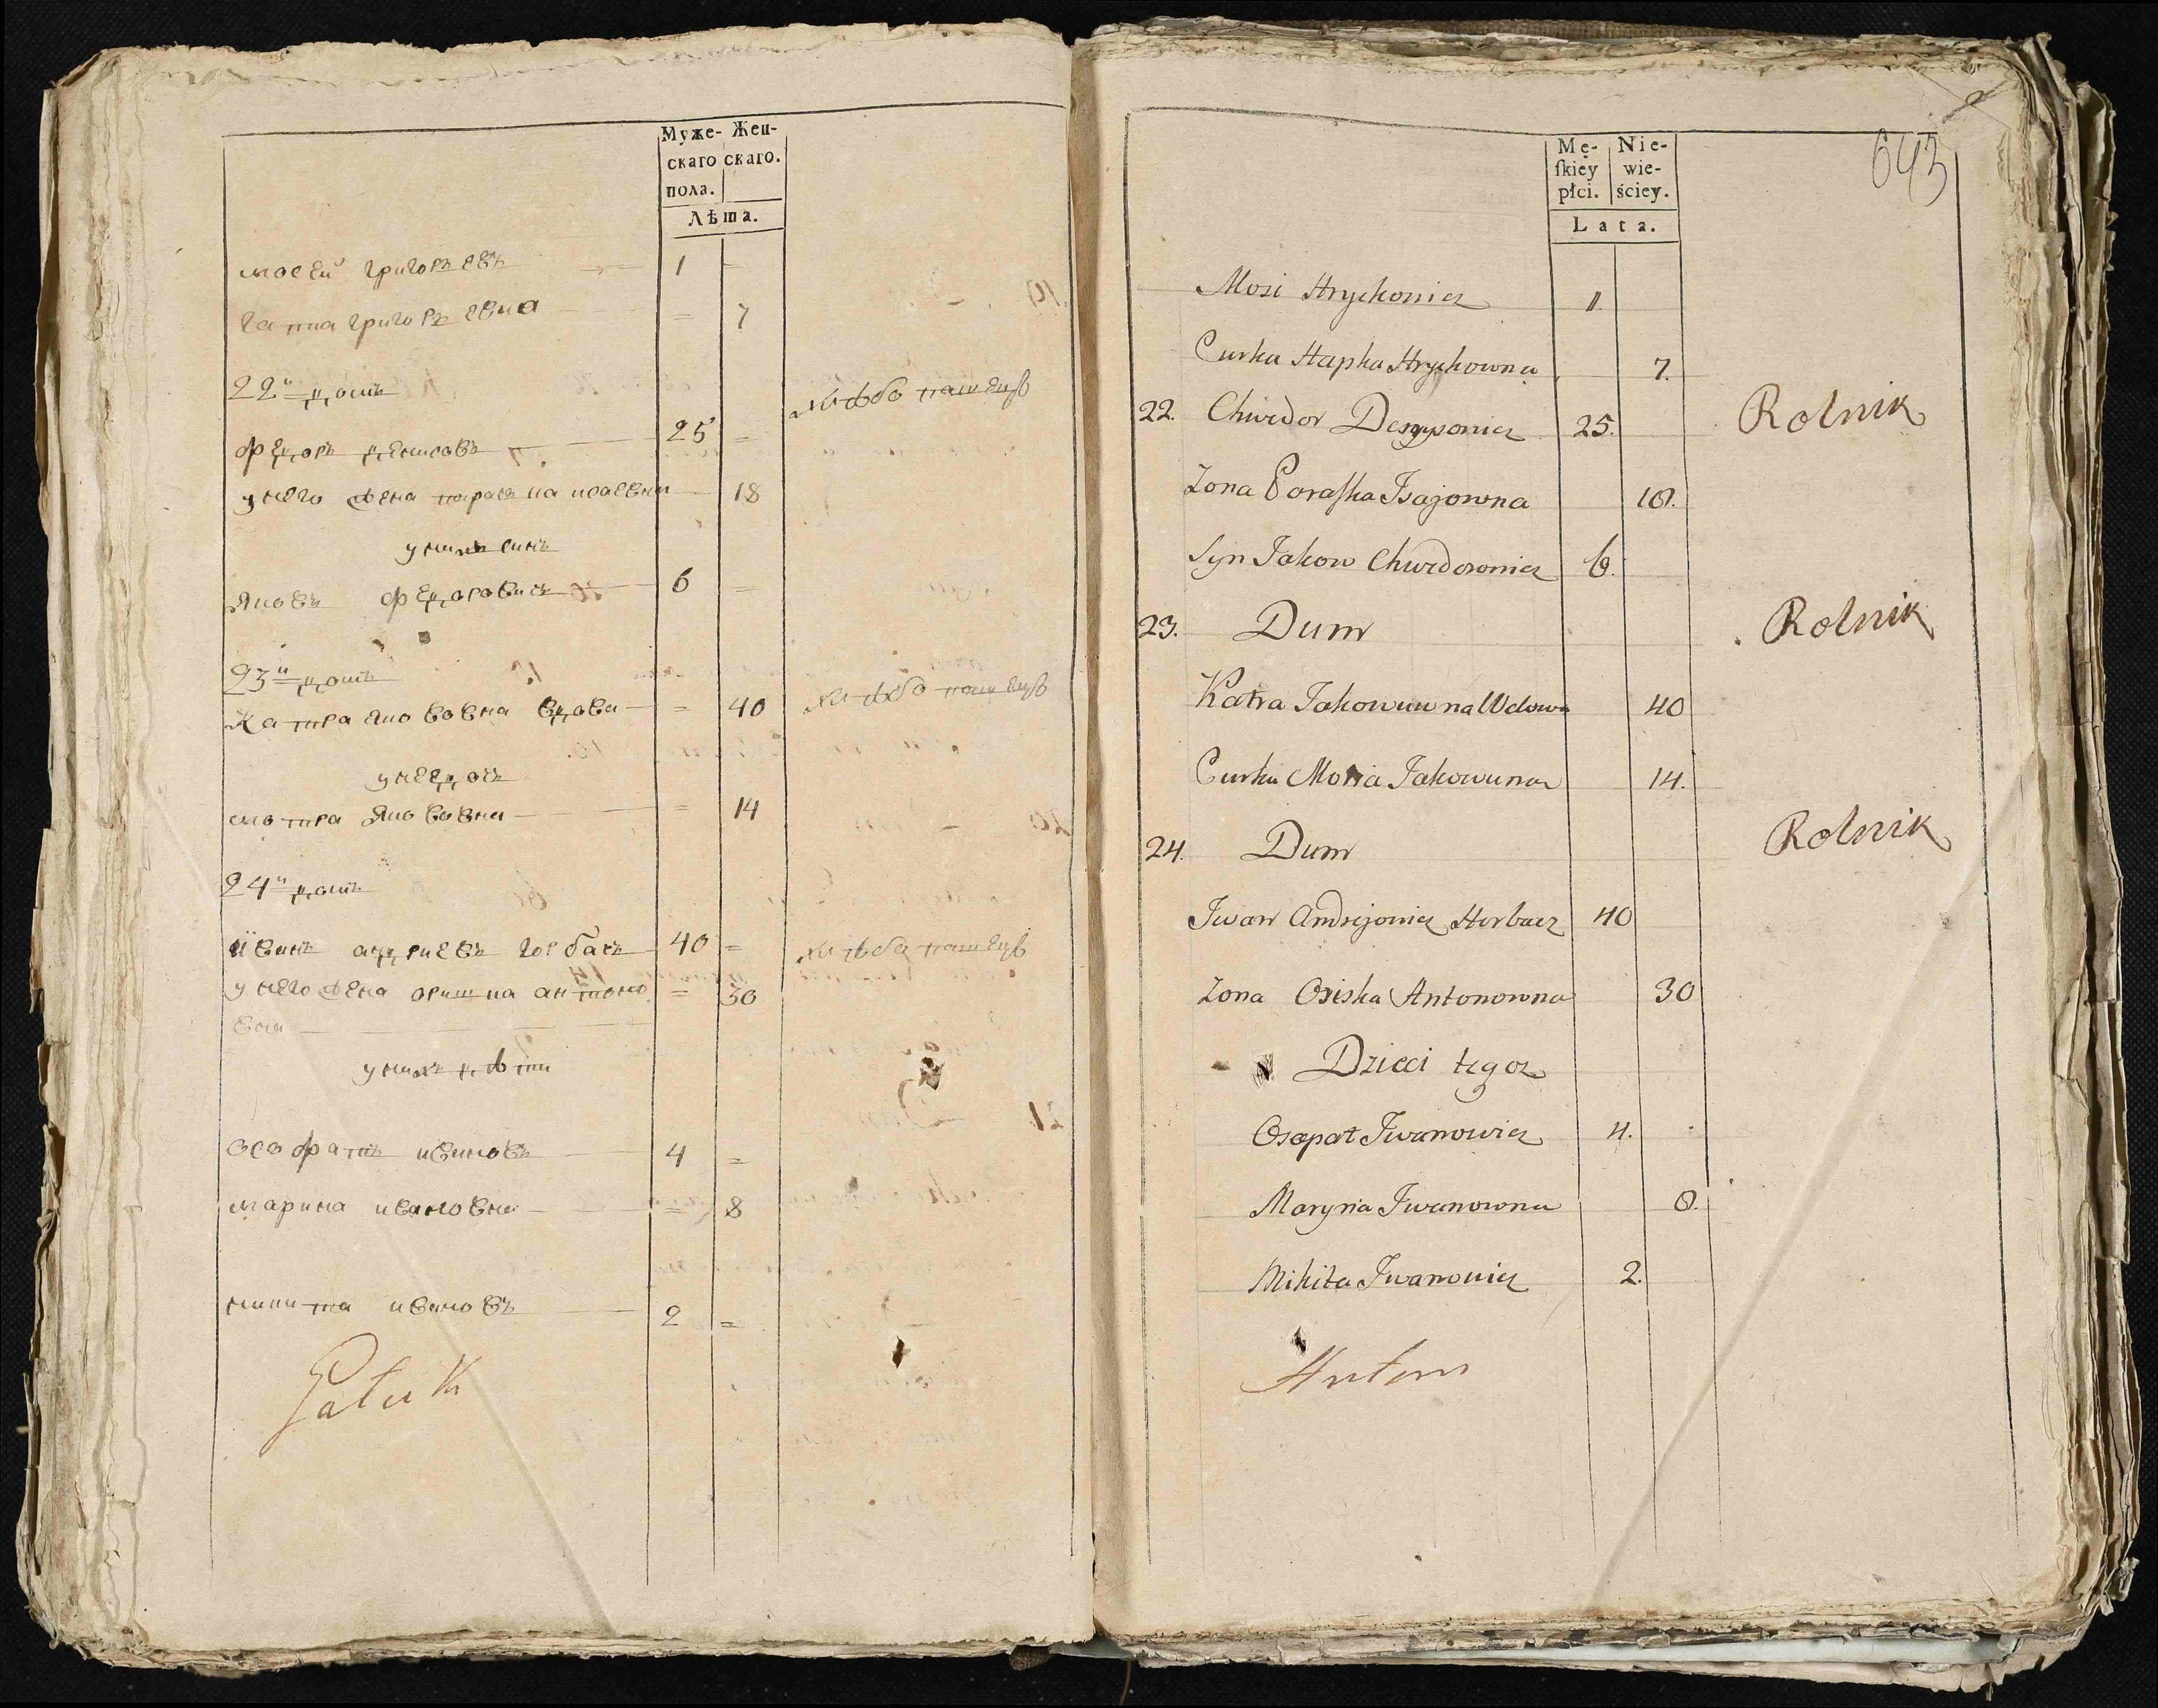 Муже- Жен-
скаго скаго.
пола.
Лѣта.
мосей григорьевъ 1 =
гапка григорьевна = 7
22й домъ
хлѣбопашецъ
федоръ денисовъ 25 =
у него жена параска исаевна 18
у нихъ синъ
яковъ федоровичъ 6 =
23й домъ
катра якововна вдова = 40 хлѣбопашецъ
у нее дочь
мотра якововна = 14
24й домъ
иванъ андриевъ горбачъ 40 = хлѣбопашецъ
у него жена оришка антоно = 30
вна
у нихъ дѣти
осафатъ ивановъ 4 =
марина ивановна = 8
никита ивановъ 2 =
Mę- Nie-
ſkiey wie-
płci. ściey.
Lata.
643
Mosi Hryckowicz 1.
Curka Hapka Hryckowna 7.
22. Chwedor Denysowicz 25. Rolnik
Zona Paraſka Isajowna 18.
Syn Jakow Chwedorowicz 6.
23. Dum Rolnik
Katra Jakowuwna Wdowa 40
Curka Motra Jakowuna 14.
24. Dum Rolnik
Iwan Andrejowicz Horbacz 40
Zona Oriska Antonowna 30
Dzieci tegoz
Osapat Iwanowicz 4.
Maryna Iwanowna 8.
Mikita Iwanowicz 2.